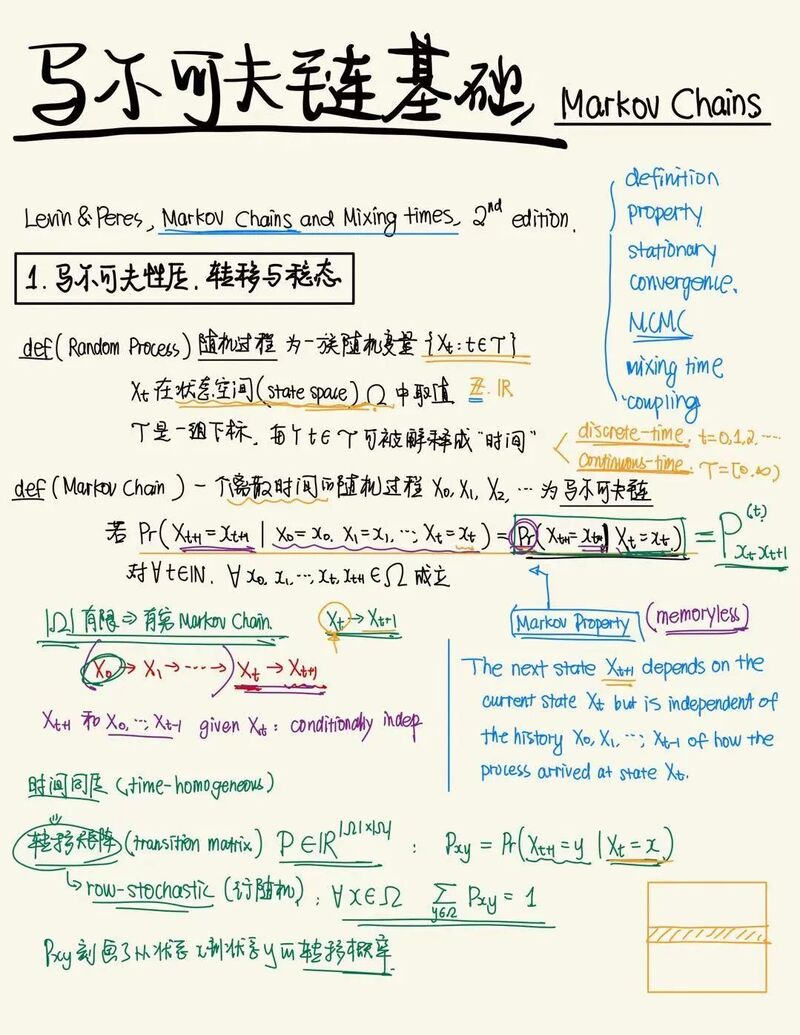 马尔可夫链基础 Markov Chains
Levin & Peres, Markov Chains and Mixing times, 2nd edition.
definition
property
stationary
convergence.
MCMC
mixing time
coupling
1. 马尔可夫性质. 转移与稳态
def (Random Process) 随机过程 为一族随机变量 {Xt : t∈T}
Xt 在状态空间 (state space) Ω 中取值 ℤ. ℝ
T是一组下标, 每个 t∈T 可被解释成 "时间"
discrete-time. t=0,1,2,...
continuous-time. T=[0,∞)
def (Markov Chain) 一个离散时间的随机过程 X0, X1, X2, ... 为马尔可夫链
若 Pr(Xt+1 = xt+1 | X0=x0. X1=x1, ..., Xt=xt) = Pr(Xt+1=xt+1 | Xt=xt) = P(t)xtxt+1
对 ∀t∈ℕ, ∀x0, x1, ..., xt, xt+1 ∈ Ω 成立
Markov Property (memoryless)
|Ω| 有限 ⇒ 有穷 Markov Chain. Xt → Xt+1
X0 → X1 → ---- → Xt → Xt+1
Xt+1 和 X0, ..., Xt-1 given Xt : conditionally indep
The next state Xt+1 depends on the
current state Xt but is independent of
the history X0, X1, ..., Xt-1 of how the
process arrived at state Xt.
时间同质 (time-homogeneous)
转移矩阵 (transition matrix) P∈ℝ|Ω|×|Ω| : Pxy = Pr(Xt+1=y | Xt=x)
↳ row-stochastic (行随机) : ∀x∈Ω ∑y∈Ω Pxy = 1
Pxy 刻画了从状态 x 到状态 y 的转移概率